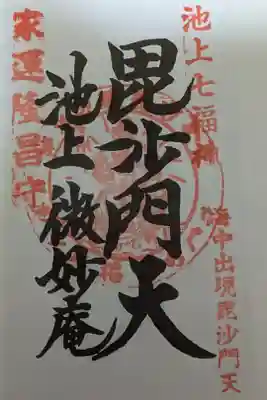 池上七福神
海中出現毘沙門天
毘沙門天
池上 微妙庵
家運隆昌守